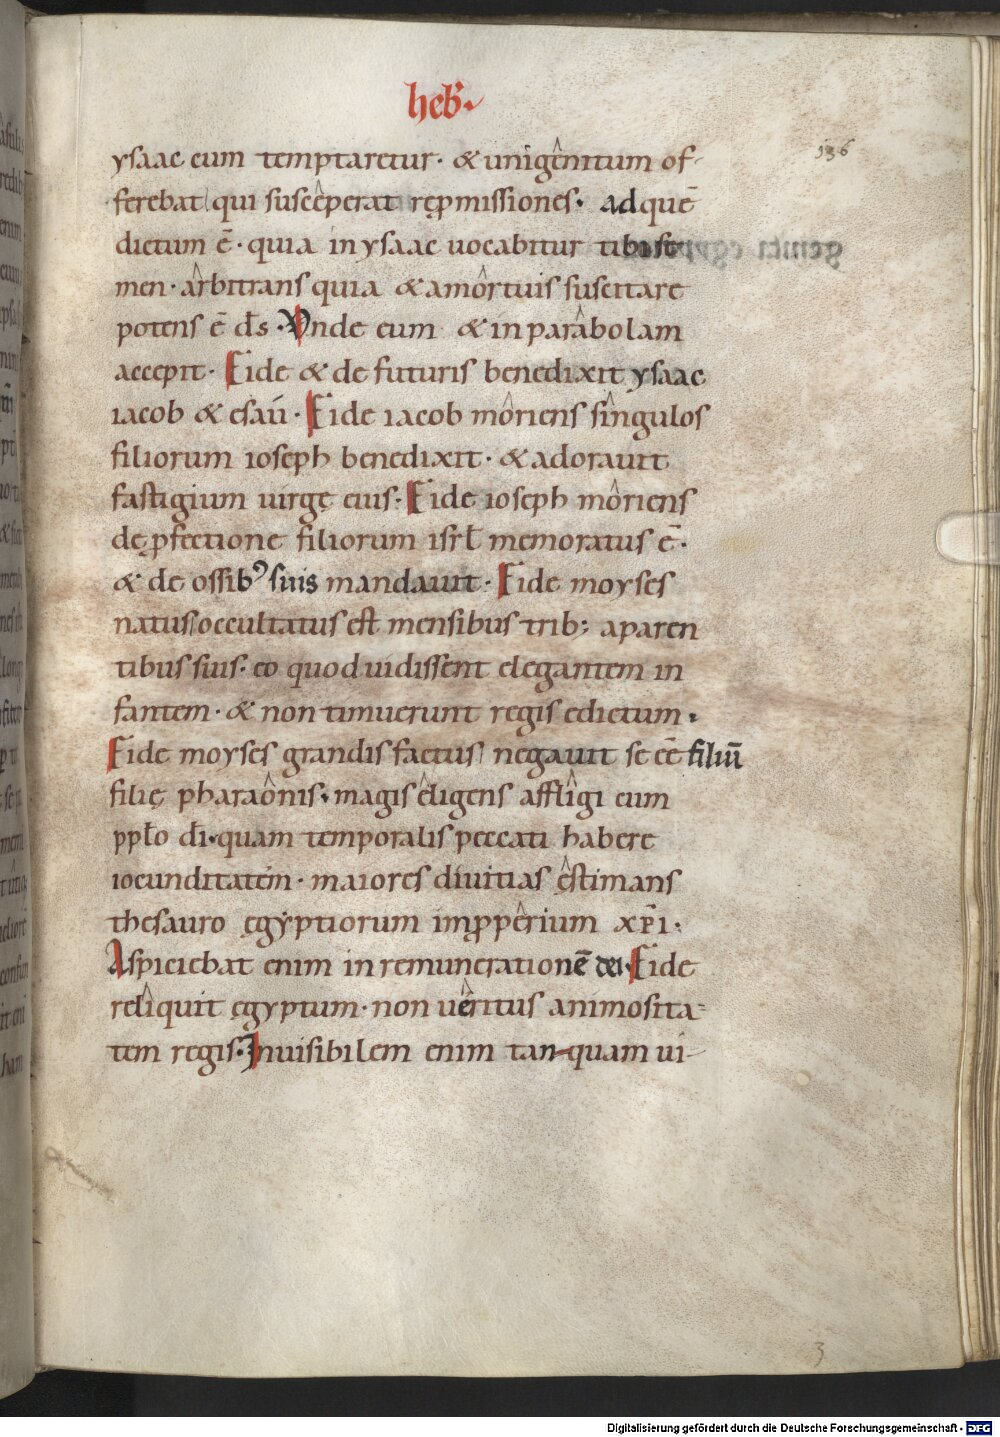 hebr̄.
136
ysaac cum temptaretur · & unigênitum of-
ferebat qui suscêperat rep̱missiones · ad quē
dictum ē · quia in ysaac uocabitur tibi se
men · ârbitrans quia & a môrtuis suscitare
potens ē d̄s · Vnde eum & in parâbolam
accepit · Fide & de futuris benedixit ysaac
iacob & esaú · Fide iacob môriens sîngulos
filiorum ioseph benedixit · & adorauit
fastigium uirgę eius · Fide ioseph môriens
de ꝓfectione filiorum isrł memoratus ē ·
& de ossibꝰ suis mandauit · Fide moyses
natus occultatus est mensibus trib; a paren
tibus suis · eo quod uidissent elegantem in
fantem · & non timuerunt regis edictum ·
Fide moyses grandis factus negauit se eē filiū
filię pharaônis · magis êligens afflîgi cum
ppło di · quam temporalis peccati habere
iocunditatém · maiores diuitias ęstimans
thesauro ęgyptiorum imꝓpêrium xp̄i ·
Aspiciebat enim in remunerationē dei · Fide
relîquit ęgyptum · non uêritus animosita-
tem regis · Inuisibilem enim tan-quam ui-
3
Digitalisierung gefördert durch die Deutsche Forschungsgemeinschaft - DFG